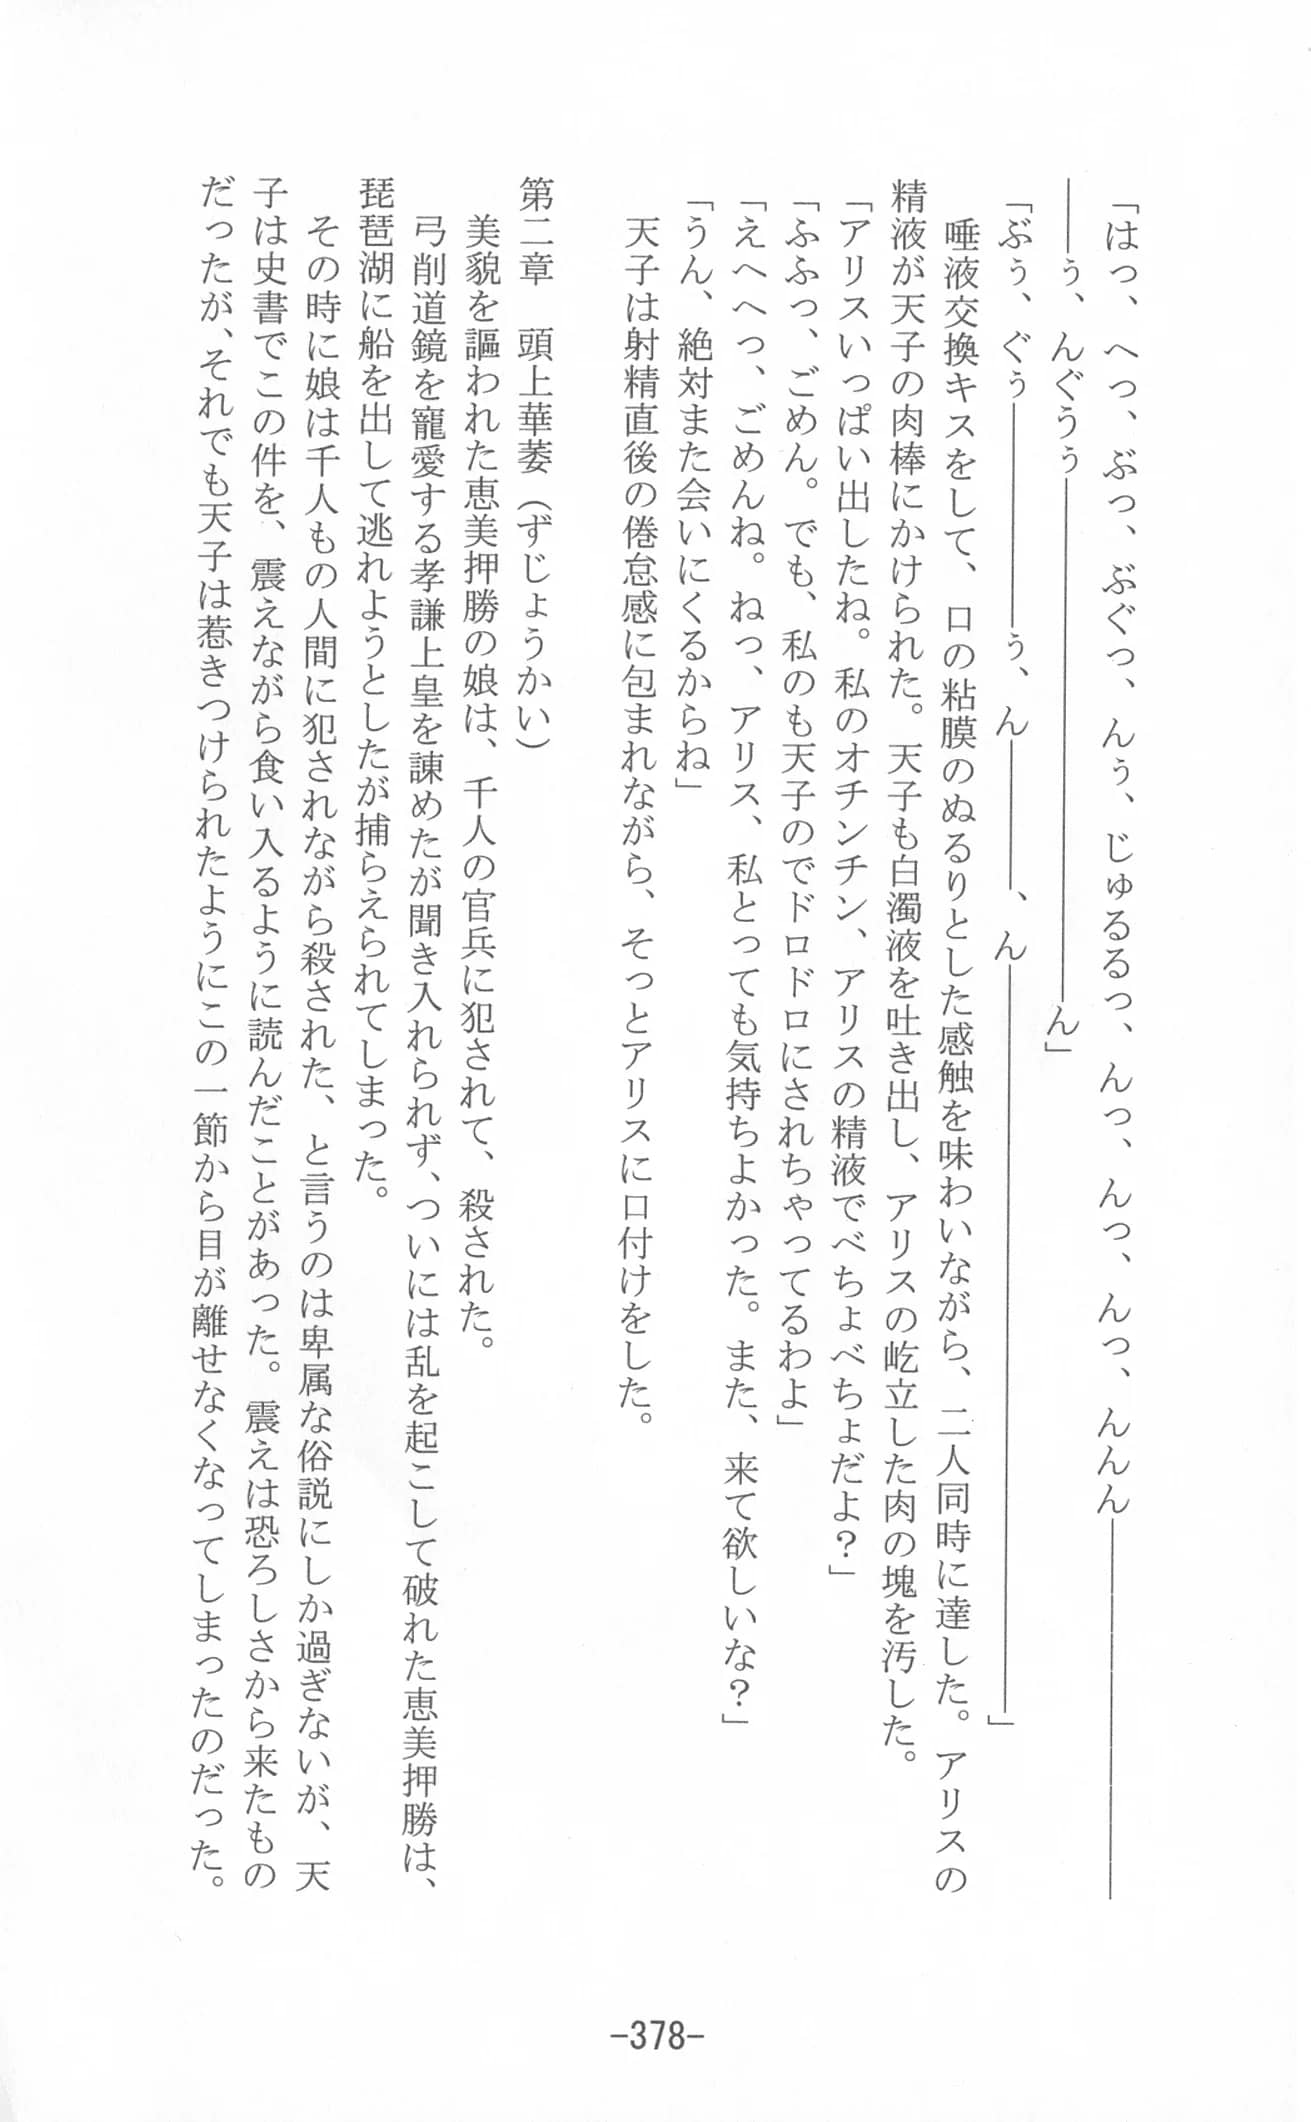 「はっ、へっ、ぶっ、ぶぐっ、んぅ、じゅるるっ、んっ、んっ、んっ、んんん――――――
――ぅ、んぐうぅ――――――――――――――ん」
「ぶぅ、ぐぅ――――――ぅ、ん――――、ん――――――――――――――――――――」
　唾液交換キスをして、口の粘膜のぬるりとした感触を味わいながら、二人同時に達した。アリスの
精液が天子の肉棒にかけられた。天子も白濁液を吐き出し、アリスの屹立した肉の塊を汚した。
「アリスいっぱい出したね。私のオチンチン、アリスの精液でべちょべちょだよ？」
「ふふっ、ごめん。でも、私のも天子のでドロドロにされちゃってるわよ」
「えへへっ、ごめんね。ねっ、アリス、私とっても気持ちよかった。また、来て欲しいな？」
「うん、絶対また会いにくるからね」
　天子は射精直後の倦怠感に包まれながら、そっとアリスに口付けをした。
第二章　頭上華萎（ずじょうかい）
　美貌を謳われた恵美押勝の娘は、千人の官兵に犯されて、殺された。
　弓削道鏡を寵愛する孝謙上皇を諌めたが聞き入れられず、ついには乱を起こして破れた恵美押勝は、
琵琶湖に船を出して逃れようとしたが捕らえられてしまった。
　その時に娘は千人もの人間に犯されながら殺された、と言うのは卑属な俗説にしか過ぎないが、天
子は史書でこの件を、震えながら食い入るように読んだことがあった。震えは恐ろしさから来たもの
だったが、それでも天子は惹きつけられたようにこの一節から目が離せなくなってしまったのだった。
-378-